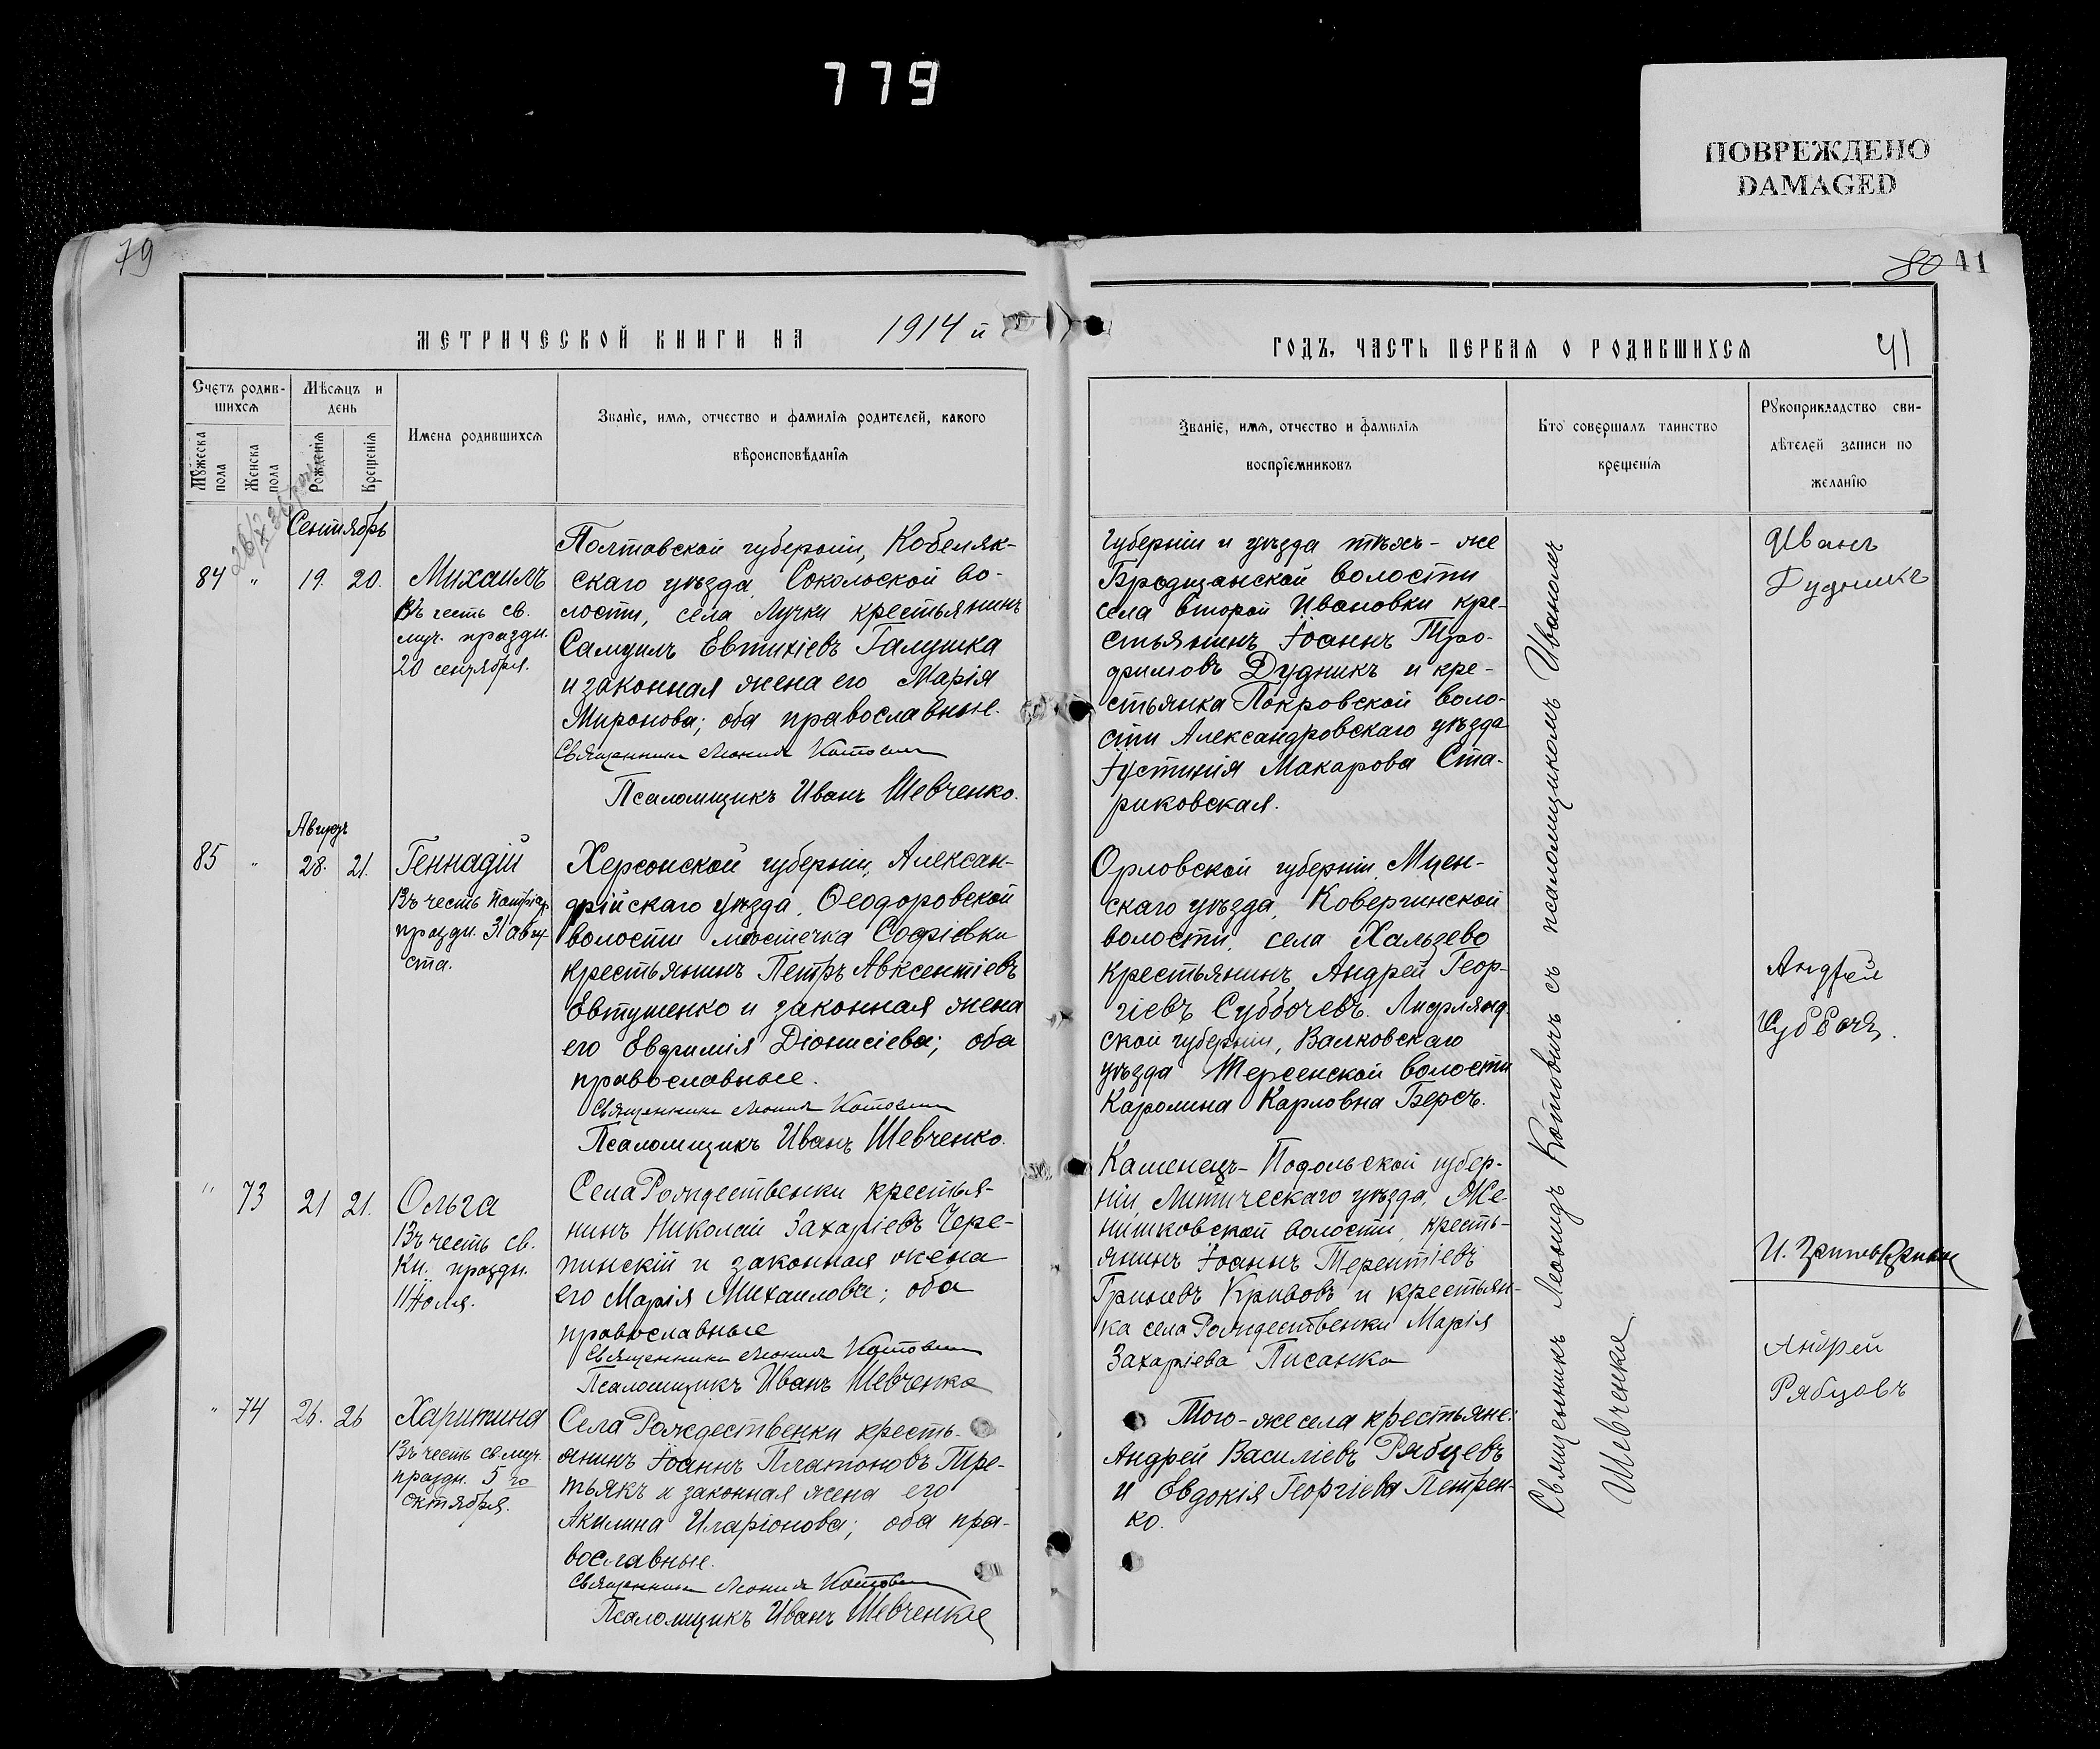 779
ПОВРЕЖДЕНО
DAMAGED
79
80 41
МЕТРИЧЕСКОЙ КНИГИ НА 1914 й
ГОДЪ, ЧАСТЬ ПЕРВАЯ О РОДИВШИХСЯ
41
Счетъ родив-
шихся
Мужеска
пола
Женска
пола
Мѣсяцъ и
день
Рожденія
Крещенія
Имена родившихся
Званіе, имя, отчество и фамилія родителей, какого
вѣроисповѣданія
Званіе, имя, отчество и фамилія
воспріемниковъ
Кто совершалъ таинство
крещенія
Рукоприкладство сви-
дѣтелей записи по
желанію
Сентябрь
84 " 19. 20.
Михаилъ
Въ честь св.
муч. праздн.
20 сентября.
Полтавской губерніи, Кобеляк-
скаго уѣзда, Сокольской во-
лости, села Лучки крестьянинъ
Самуилъ Евтихіевъ Галушка
и законная жена его Марія
Миронова; оба православные.
Священникъ Леонидъ Котович
Псаломщикъ Иванъ Шевченко.
губерніи и уѣзда тѣхъ-же
Бродщанской волости
села второй Ивановки кре-
стьянинъ Іоаннъ Тро-
фимовъ Дудникъ и кре-
стьянка Покровской воло-
сти Александровскаго уѣзда
Іустинія Макарова Ста-
риковская.
Иванъ
Дудникъ
Августъ
85 " 28. 21.
Геннадій
Въ честь патріар.
праздн. 31 авгу-
ста.
Херсонской губерніи, Алексан-
дрійскаго уѣзда, Ѳеодоровской
волости мѣстечка Софіевки
крестьянинъ Петръ Авксентіевъ
Евтушенко и законная жена
его Евфимія Діонисіева; оба
православные.
Священникъ Леонидъ Котович
Псаломщикъ Иванъ Шевченко.
Орловской губерніи, Мцен-
скаго уѣзда, Ковергинской
волости, села Хальзево
крестьянинъ Андрей Геор-
гіевъ Субботчевъ. Лифлянд-
ской губерніи, Валковскаго
уѣзда Терсенской волости
Каролина Карловна Берсъ.
Андрей
" 73 21 21.
Ольга
Въ честь св.
Кн. праздн.
11 Іюля.
Села Рождественки крестья-
нинъ Николай Захаріевъ Чере-
пинскій и законная жена
его Марія Михаилова; оба
православные
Священникъ Леонидъ Котович
Псаломщикъ Иванъ Шевченко
Каменецъ-Подольской губер-
ніи, Литическаго уѣзда, Же-
нишковской волости, кресть-
янинъ Іоаннъ Терентіевъ
Гриневъ Кривовъ и крестьян-
ка села Рождественки Марія
Захаріева Писанка
" 74 26. 26
Харитина
Въ честь св. муч.
праздн. 5 го
октября.
Села Рождественки кресть-
янинъ Іоаннъ Платоновъ Тре-
тьякъ и законная жена его
Акилина Иларіонова; оба пра-
вославные.
Священникъ Леонидъ Котович
Псаломщикъ Иванъ Шевченко
Того-же села крестьяне:
Андрей Василіевъ Рябцевъ
и Евдокія Георгіева Петрен-
ко.
Андрей
Рябцовъ
Священникъ Леонидъ Котовичъ съ псаломщикомъ Иваномъ
Шевченко